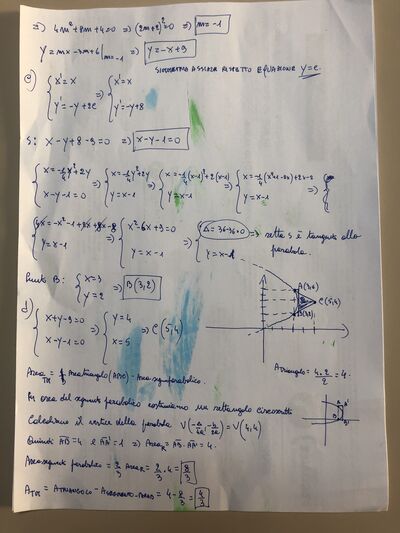 =) 4m²+8m+4=0 => (2m+2)²=0 => m=-1
y=mx-3m+6|m=-1 => y=-x+9
SIMMETRIA ASSIALE RISPETTO EQUAZIONE y=c.
c) { x'=x y'=-y+2c => { x'=x y'=-y+8
s: x-y+8-9=0 => x-y-1=0
{ x=-1/4y²+2y x-y-1=0 => { x=-1/4y²+2y y=x-1 => { x=-1/4(x-1)²+2(x-1) y=x-1 => { x=-1/4(x²+1-2x)+2x-2 y=x-1 => {
{ 4x=-x²-1+2x+8x-8 y=x-1 => { x²-6x+9=0 y=x-1 => { Δ=36-36=0 => retta s è tangente alla y=x-1
parabola.
Punto B: { x=3 y=2 => B(3,2)
A(3,6)
C(5,4)
B(3,2)
d) { x+y-9=0 x-y-1=0 => { y=4 x=5 => C(5,4)
Atriangolo= 4·2/2 = 4.
Area = Areatriangolo(ABC) - Area segm parabolico.
Per area del segmento parabolico costruiamo un rettangolo circoscritto
Calcoliamo il vertice della parabola V(-Δ/4a, -b/2a) = V(4,4)
Quindi AB=4 e AA'=1 => AreaR = AB·AA' = 4.
Area segmento parabolico = 2/3 AreaR = 2/3·4 = 8/3
= 4-8/3 = 4/3